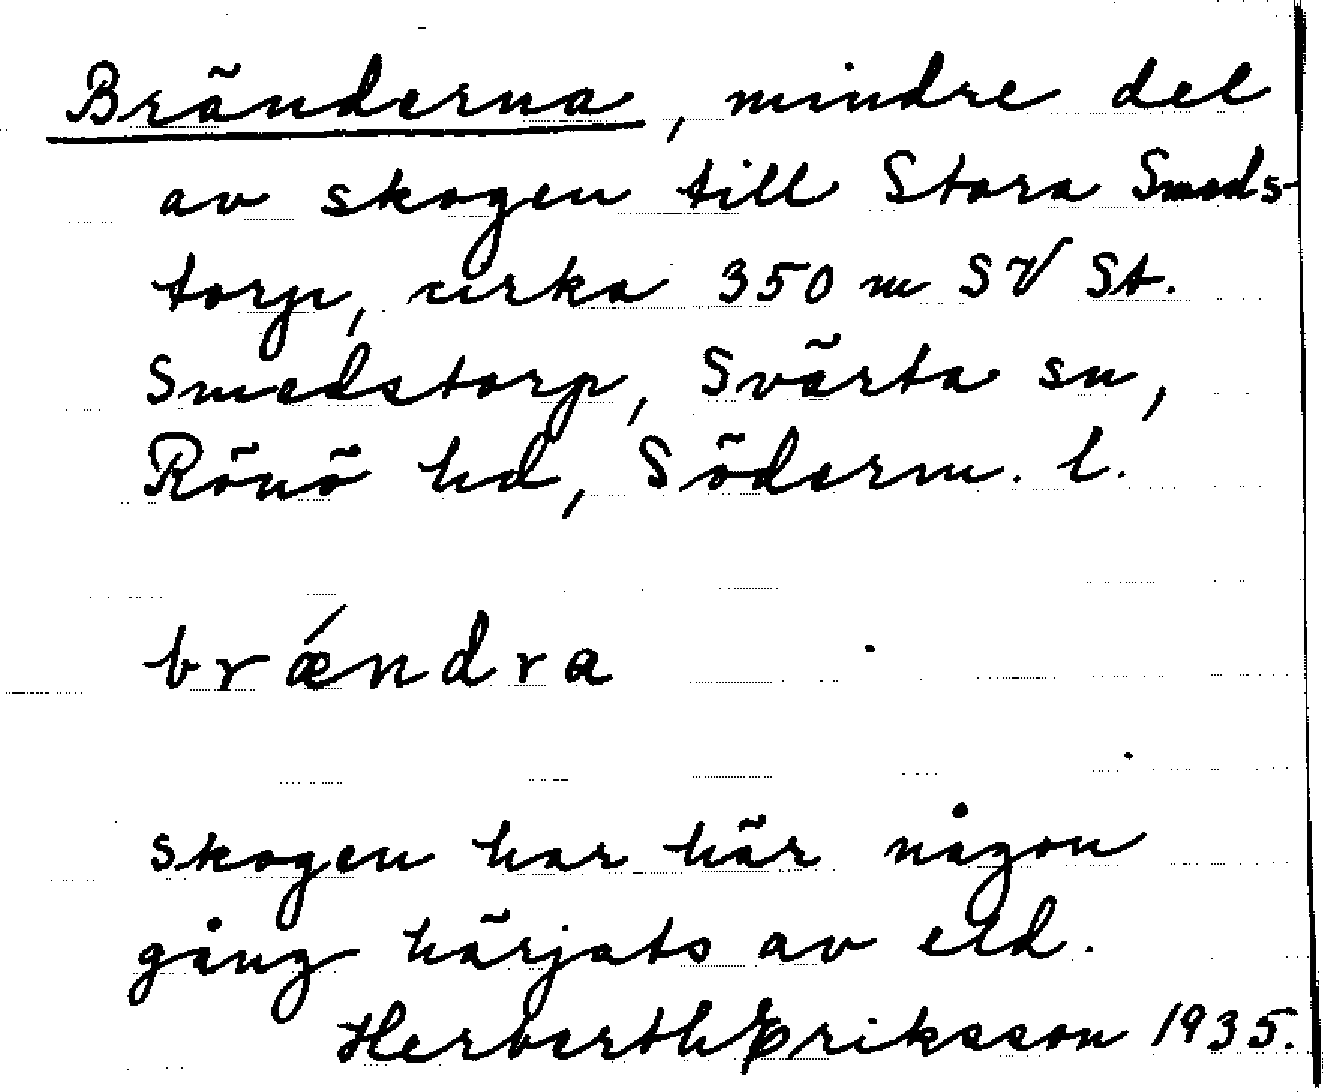 Bränderna, mindre del
av skogen till Stora Smeds-
torp, cirka 350 m SV St.
Smedstorp, Svärta sn,
Rönö hd, Söderm. l.
brǽndra
skogen har här någon
gång härjats av eld.
Herberth Eriksson 1935.